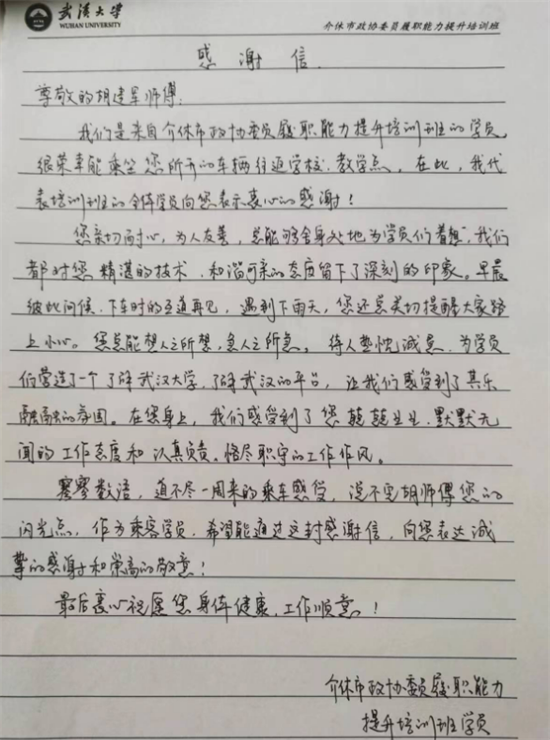 武汉大学 介休市政协委员履职能力提升培训班
WUHAN UNIVERSITY
感谢信
尊敬的胡建军师傅:
我们是来自介休市政协委员履职能力提升培训班的学员,
很荣幸能乘坐您所开的车辆往返学校、教学点。在此,我代
表培训班的全体学员向您表示衷心的感谢!
您亲切耐心,为人友善,总能够舍身处地为学员们着想,我们
都对您精湛的技术、和谐可亲的态度留下了深刻的印象。早晨
彼此问候、下车时的互道再见,遇到下雨天,您还总关切提醒大家路
上小心。您总能想人之所想,急人之所急。待人热忱诚意,为学员
们营造了一个了解武汉大学、了解武汉的平台,让我们感受到了其乐
融融的氛围。在您身上,我们感受到了您兢兢业业、默默无
闻的工作态度和认真负责、恪尽职守的工作作风。
寥寥数语,道不尽一周来的乘车感受,说不完胡师傅您的
闪光点,作为乘客学员,希望能通过这封感谢信,向您表达诚
挚的感谢和崇高的敬意!
最后衷心祝愿您身体健康,工作顺意!
介休市政协委员履职能力
提升培训班学员